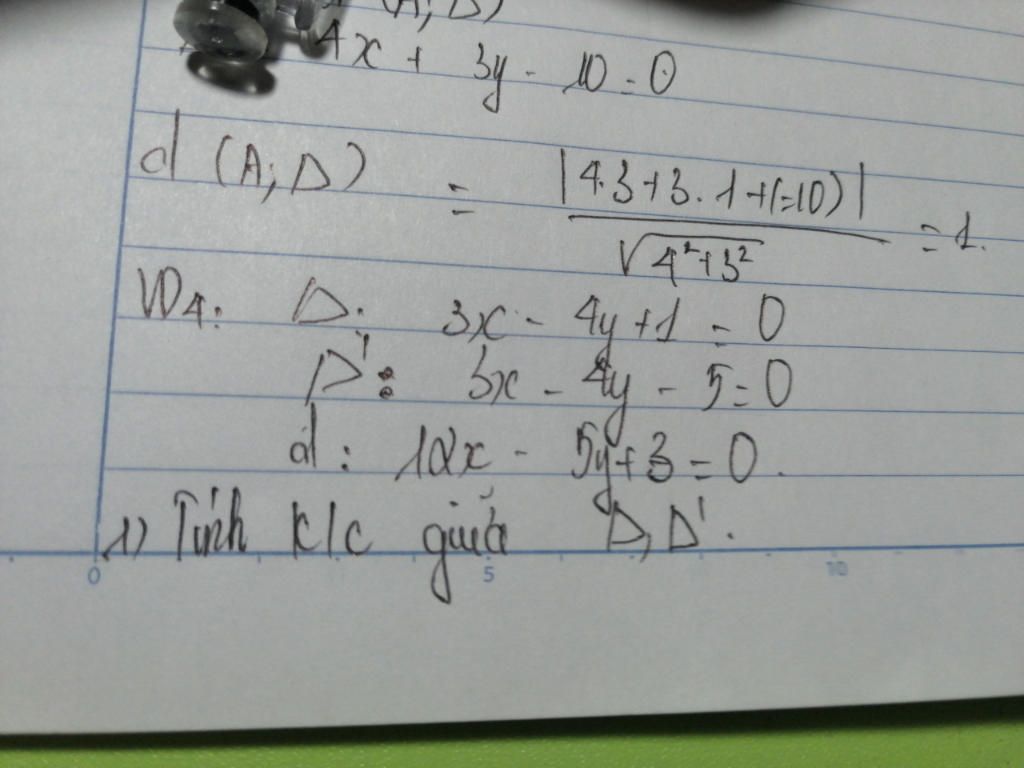 (A; Δ)
4x + 3y - 10 = 0
d (A; Δ) = |4.3+3.1+(-10)| / √4²+3² = 1.
VD4: Δ: 3x - 4y + 1 = 0
Δ': 3x - 4y - 5 = 0
d: 12x - 5y + 3 = 0.
1) Tính k/c giữa Δ, Δ'.
0 5 10